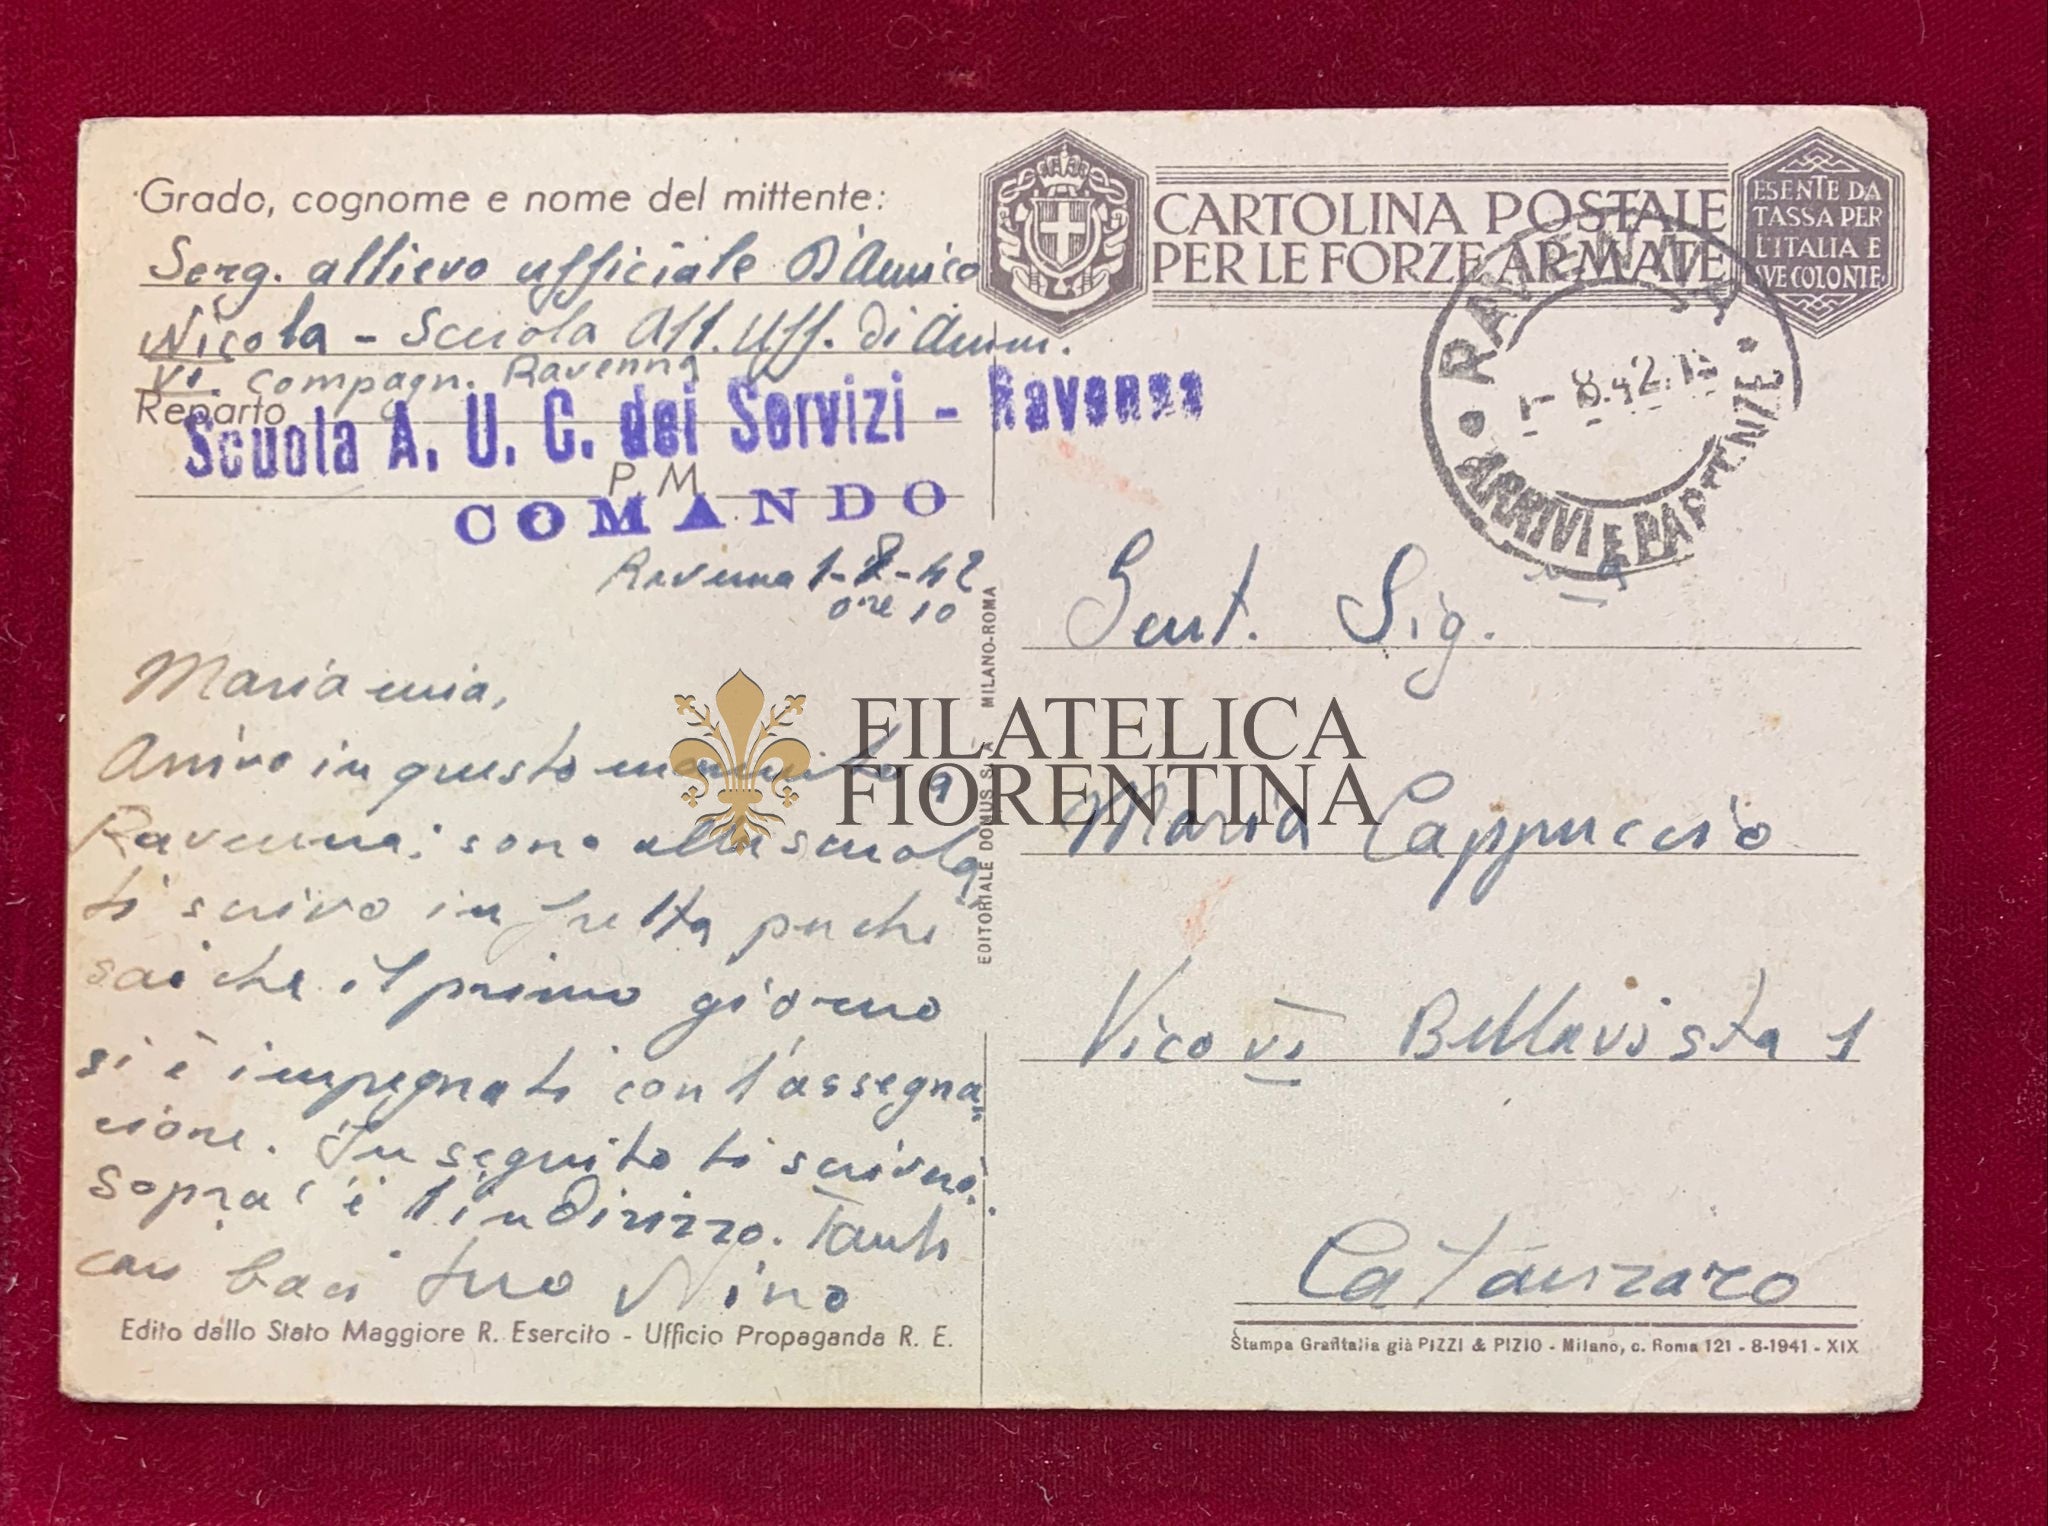 Grado, cognome e nome del mittente:
Serg. allievo ufficiale D'Amico
Nicola - Scuola All. Uff. di Amm.
VI. Compagn. Ravenna
Reparto
Scuola A. U. C. dei Servizi - Ravenna
P M
COMANDO
Ravenna 1-8-42
ore 10
Maria mia,
Arrivo in questo momento a
Ravenna; sono alla scuola
ti scrivo in fretta perché
sai che il primo giorno
si è impegnati con l'assegna=
zione. In seguito ti scriverò.
Sopra c'è l'indirizzo. Tanti
cari baci tuo Nino
Edito dallo Stato Maggiore R. Esercito - Ufficio Propaganda R. E.
EDITORIALE DOMUS S. A. MILANO-ROMA
CARTOLINA POSTALE
PER LE FORZE ARMATE
ESENTE DA
TASSA PER
L'ITALIA E
SVE COLONIE
RAVENNA
8.42
ARRIVI E PARTENZE
Gent. Sig.
Maria Cappuccio
Vico VI Bellavista 1
Catanzaro
Stampa Grafitalia già PIZZI & PIZIO - Milano, c. Roma 121 - 8-1941 - XIX
FILATELICA
FIORENTINA